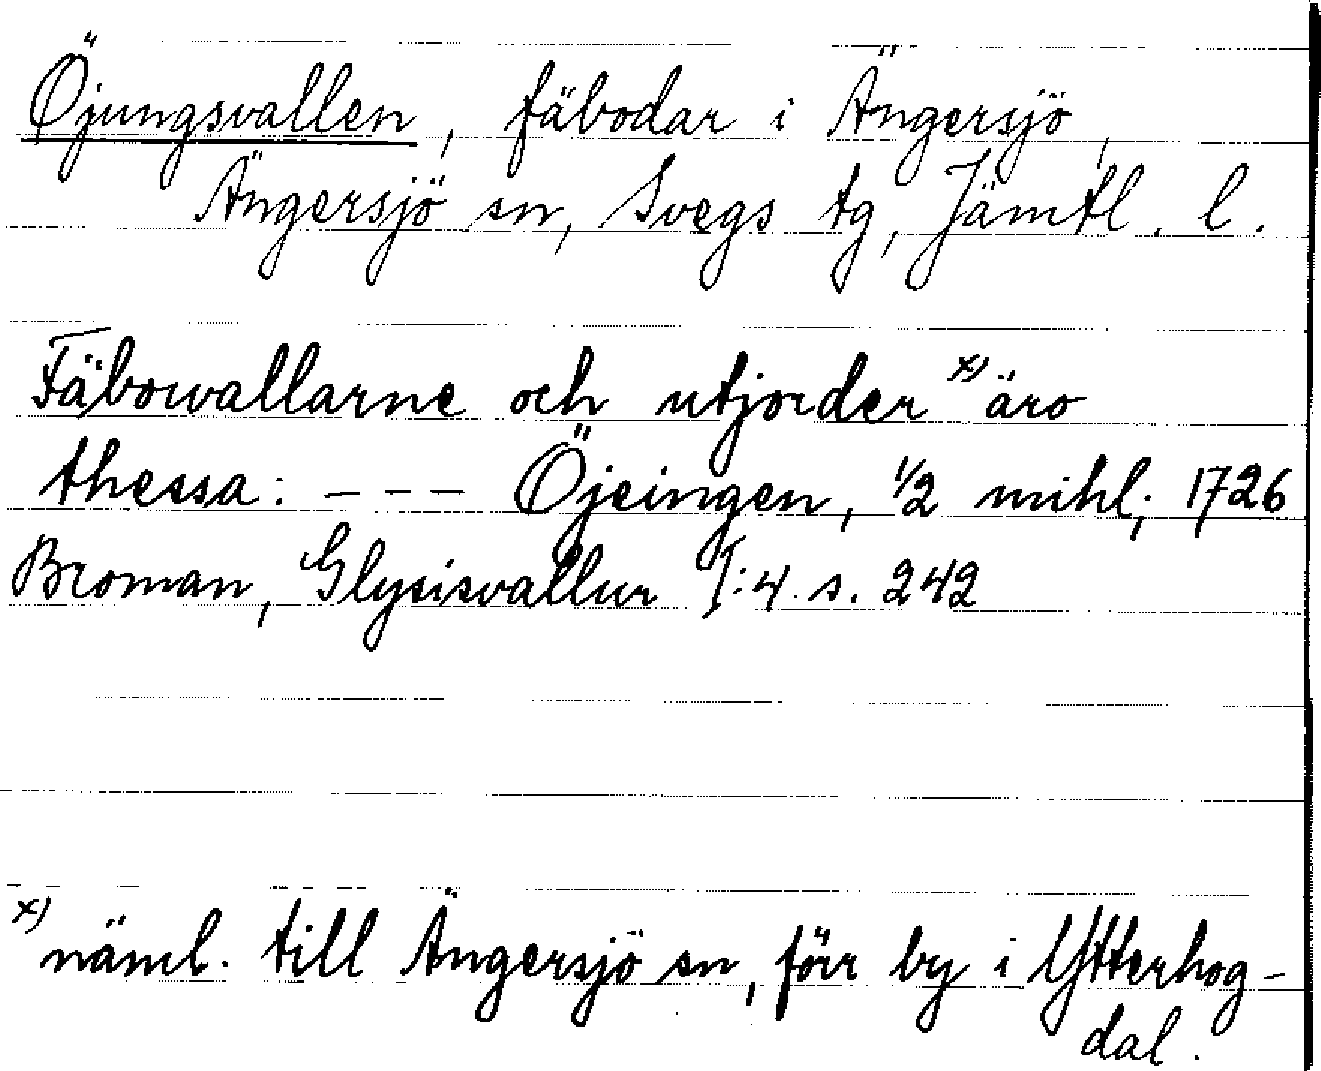 Öjungsvallen, fäbodar i Ängersjö,
Ängersjö sn, Svegs tg, Jämtl. l.
Fäbowallarne och utjorder x) äro
thessa: --- Öjeingen, 1/2 mihl; 1726
Broman, Glysisvallur I:4. s. 242
x) näml. till Ängersjö sn, förr by i Ytterhog-
dal.